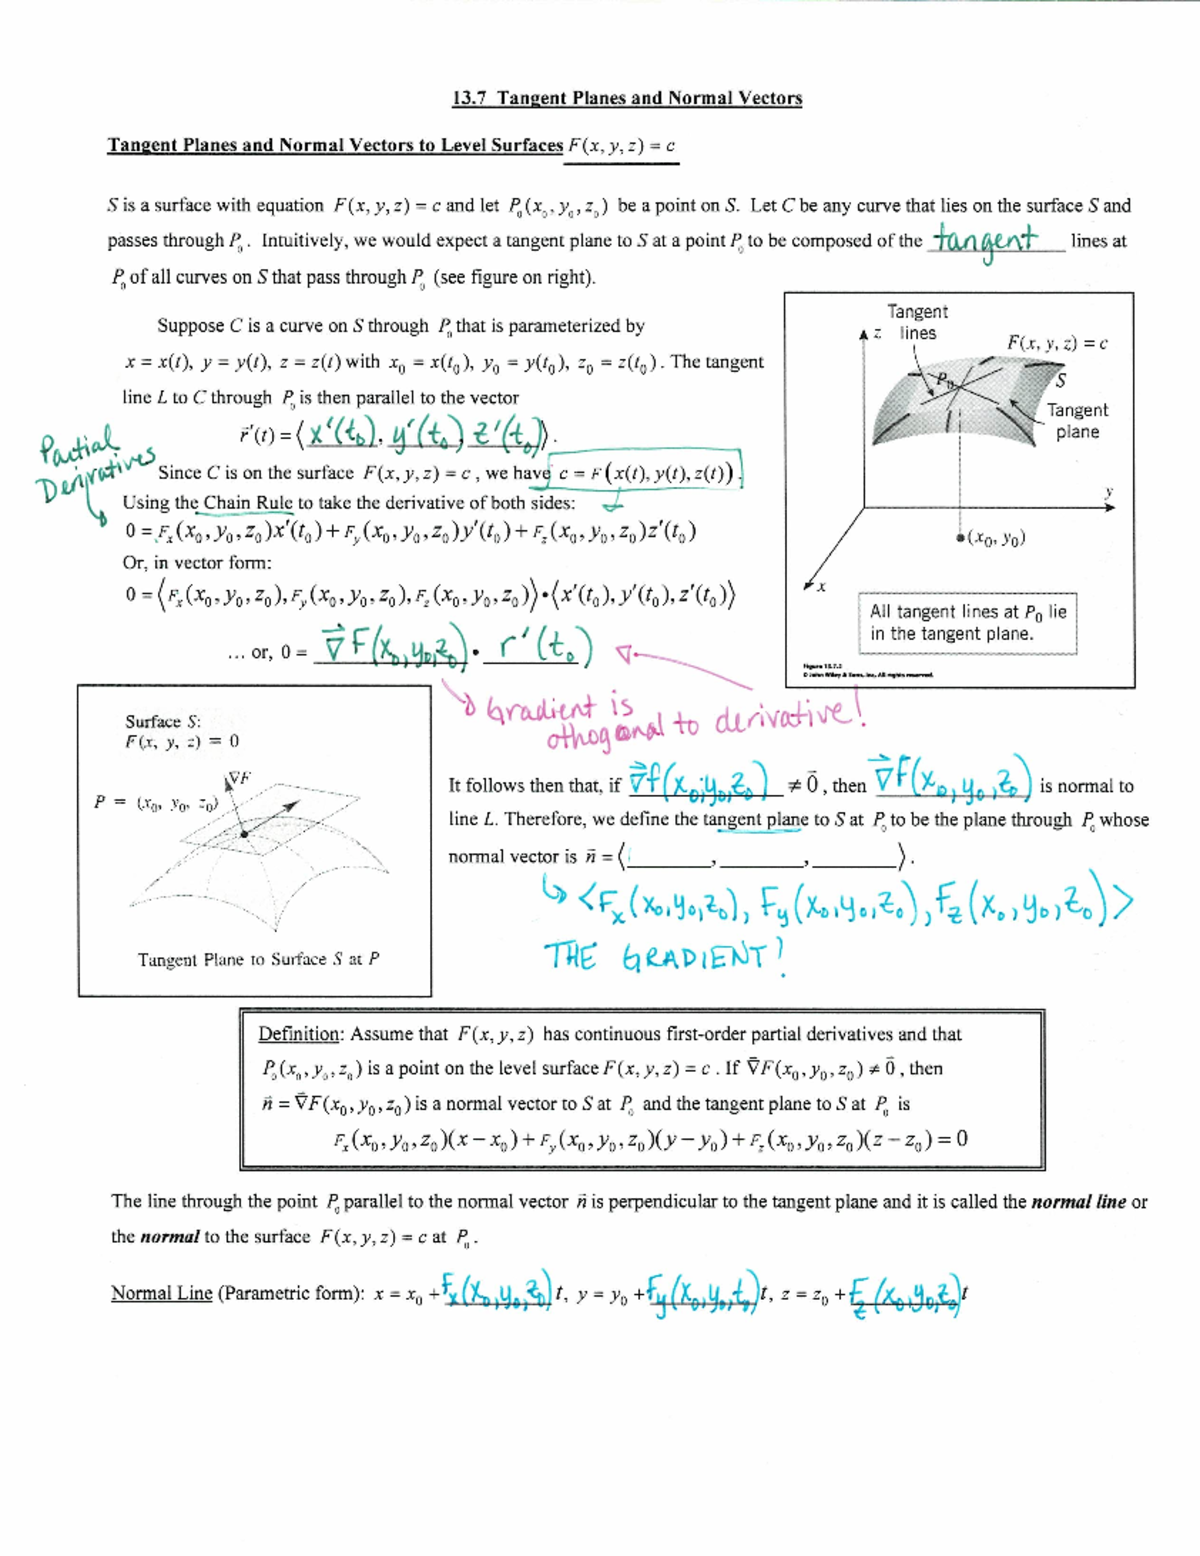 13.7 Tangent Planes and Normal Vectors
Tangent Planes and Normal Vectors to Level Surfaces F(x, y, z) = c
S is a surface with equation F(x, y, z) = c and let P₀(x₀, y₀, z₀) be a point on S. Let C be any curve that lies on the surface S and
passes through P₀. Intuitively, we would expect a tangent plane to S at a point P₀ to be composed of the tangent lines at
P₀ of all curves on S that pass through P₀ (see figure on right).
Suppose C is a curve on S through P₀ that is parameterized by
x = x(t), y = y(t), z = z(t) with x₀ = x(t₀), y₀ = y(t₀), z₀ = z(t₀). The tangent
line L to C through P₀ is then parallel to the vector
r⃗'(t) = ⟨x'(t₀), y'(t₀), z'(t₀)⟩.
Partial
Derivatives
Since C is on the surface F(x, y, z) = c, we have c = F(x(t), y(t), z(t)).
Using the Chain Rule to take the derivative of both sides:
0 = Fₓ(x₀, y₀, z₀)x'(t₀) + F_y(x₀, y₀, z₀)y'(t₀) + F_z(x₀, y₀, z₀)z'(t₀)
Or, in vector form:
0 = ⟨Fₓ(x₀, y₀, z₀), F_y(x₀, y₀, z₀), F_z(x₀, y₀, z₀)⟩•⟨x'(t₀), y'(t₀), z'(t₀)⟩
... or, 0 = ∇⃗F(x₀, y₀, z₀) • r'(t₀)
Gradient is
othogonal to derivative!
Tangent
lines
z
F(x, y, z) = c
P₀
S
Tangent
plane
y
(x₀, y₀)
x
All tangent lines at P₀ lie
in the tangent plane.
Figure 13.7.2
© John Wiley & Sons, Inc. All rights reserved.
Surface S:
F(x, y, z) = 0
∇F
P = (x₀, y₀, z₀)
Tangent Plane to Surface S at P
It follows then that, if ∇⃗f(x₀, y₀, z₀) ≠ 0⃗, then ∇⃗F(x₀, y₀, z₀) is normal to
line L. Therefore, we define the tangent plane to S at P₀ to be the plane through P₀ whose
normal vector is n⃗ = ⟨______, ______, ______⟩.
<Fₓ(x₀, y₀, z₀), F_y(x₀, y₀, z₀), F_z(x₀, y₀, z₀)>
THE GRADIENT!
Definition: Assume that F(x, y, z) has continuous first-order partial derivatives and that
P₀(x₀, y₀, z₀) is a point on the level surface F(x, y, z) = c. If ∇⃗F(x₀, y₀, z₀) ≠ 0⃗, then
n⃗ = ∇⃗F(x₀, y₀, z₀) is a normal vector to S at P₀ and the tangent plane to S at P₀ is
Fₓ(x₀, y₀, z₀)(x − x₀) + F_y(x₀, y₀, z₀)(y − y₀) + F_z(x₀, y₀, z₀)(z − z₀) = 0
The line through the point P₀ parallel to the normal vector n⃗ is perpendicular to the tangent plane and it is called the normal line or
the normal to the surface F(x, y, z) = c at P₀.
Normal Line (Parametric form): x = x₀ + fₓ(x₀, y₀, z₀)t, y = y₀ + f_y(x₀, y₀, t₀)t, z = z₀ + F_z(x₀, y₀, z₀)t